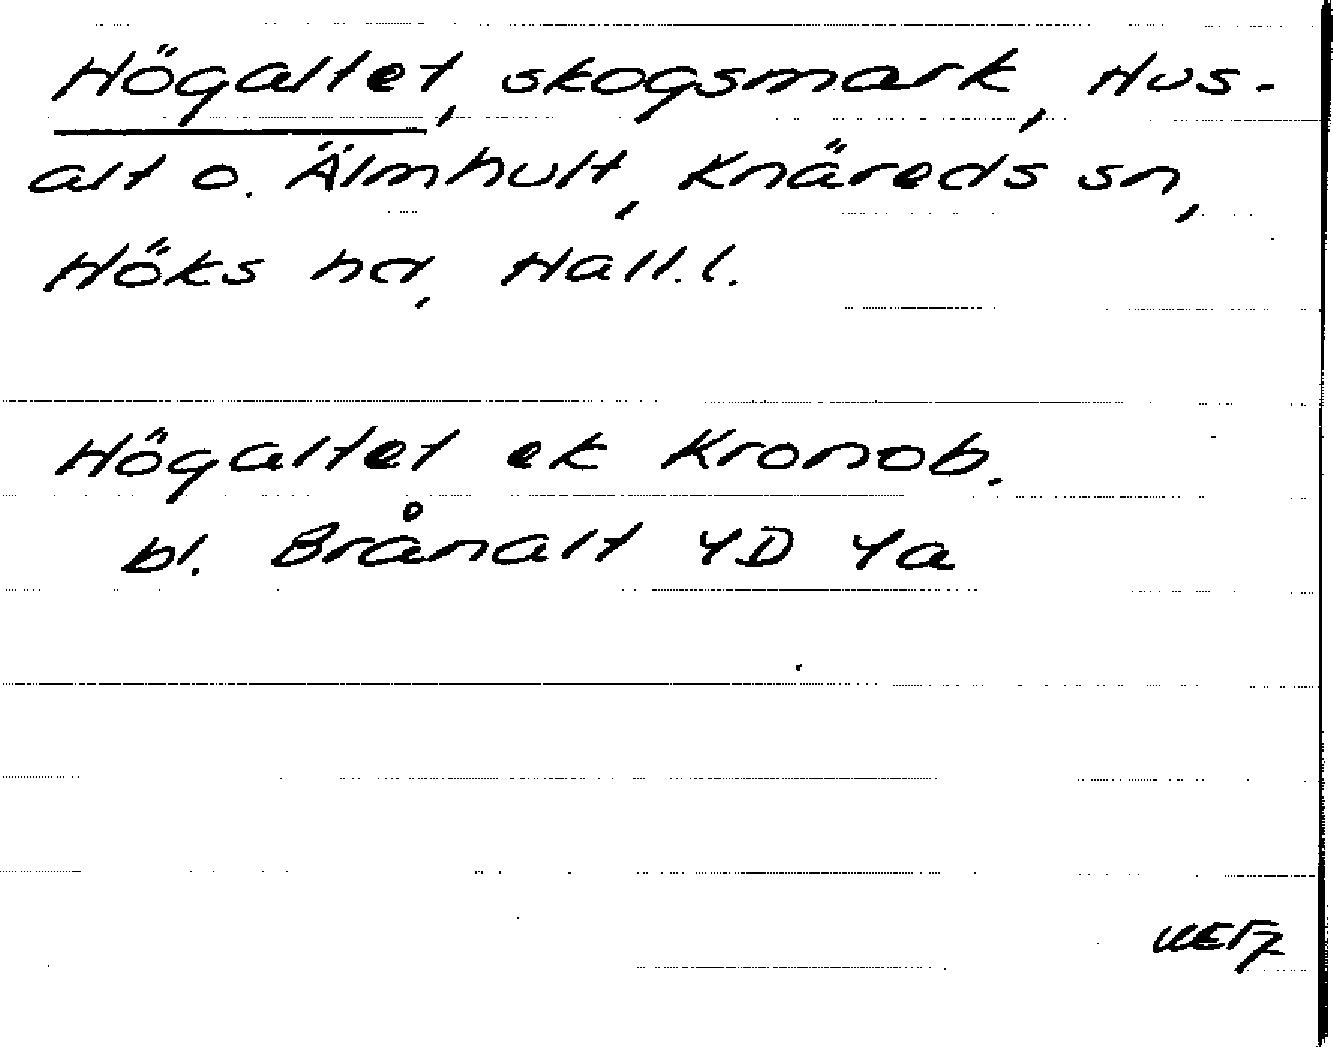 Högaltet, skogsmark, Hus-
alt o. Älmhult, Knäreds sn,
Höks hd, Hall. l.
Högaltet ek Kronob.
bl. Brånalt 4D 4a